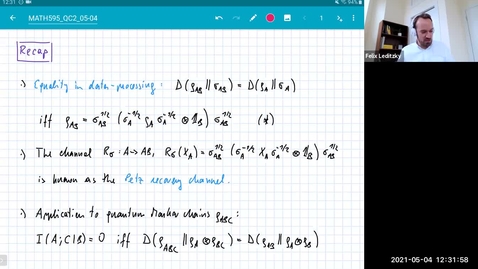 12:31
MATH595_QC2_05-04
Recap
·) Equality in data-processing: D(ρ_AB || σ_AB) = D(ρ_A || σ_A)
iff ρ_AB = σ_AB^{1/2} (σ_A^{-1/2} ρ_A σ_A^{-1/2} ⊗ 𝟙_B) σ_AB^{1/2} (*)
·) The channel R_σ: A → AB, R_σ(X_A) = σ_AB^{1/2} (σ_A^{-1/2} X_A σ_A^{-1/2} ⊗ 𝟙_B) σ_AB^{1/2}
is known as the Petz recovery channel.
·) Application to quantum Markov chains ρ_ABC:
I(A;C|B) = 0 iff D(ρ_ABC || ρ_A ⊗ ρ_BC) = D(ρ_AB || ρ_A ⊗ ρ_B)
Felix Leditzky
2021-05-04 12:31:58